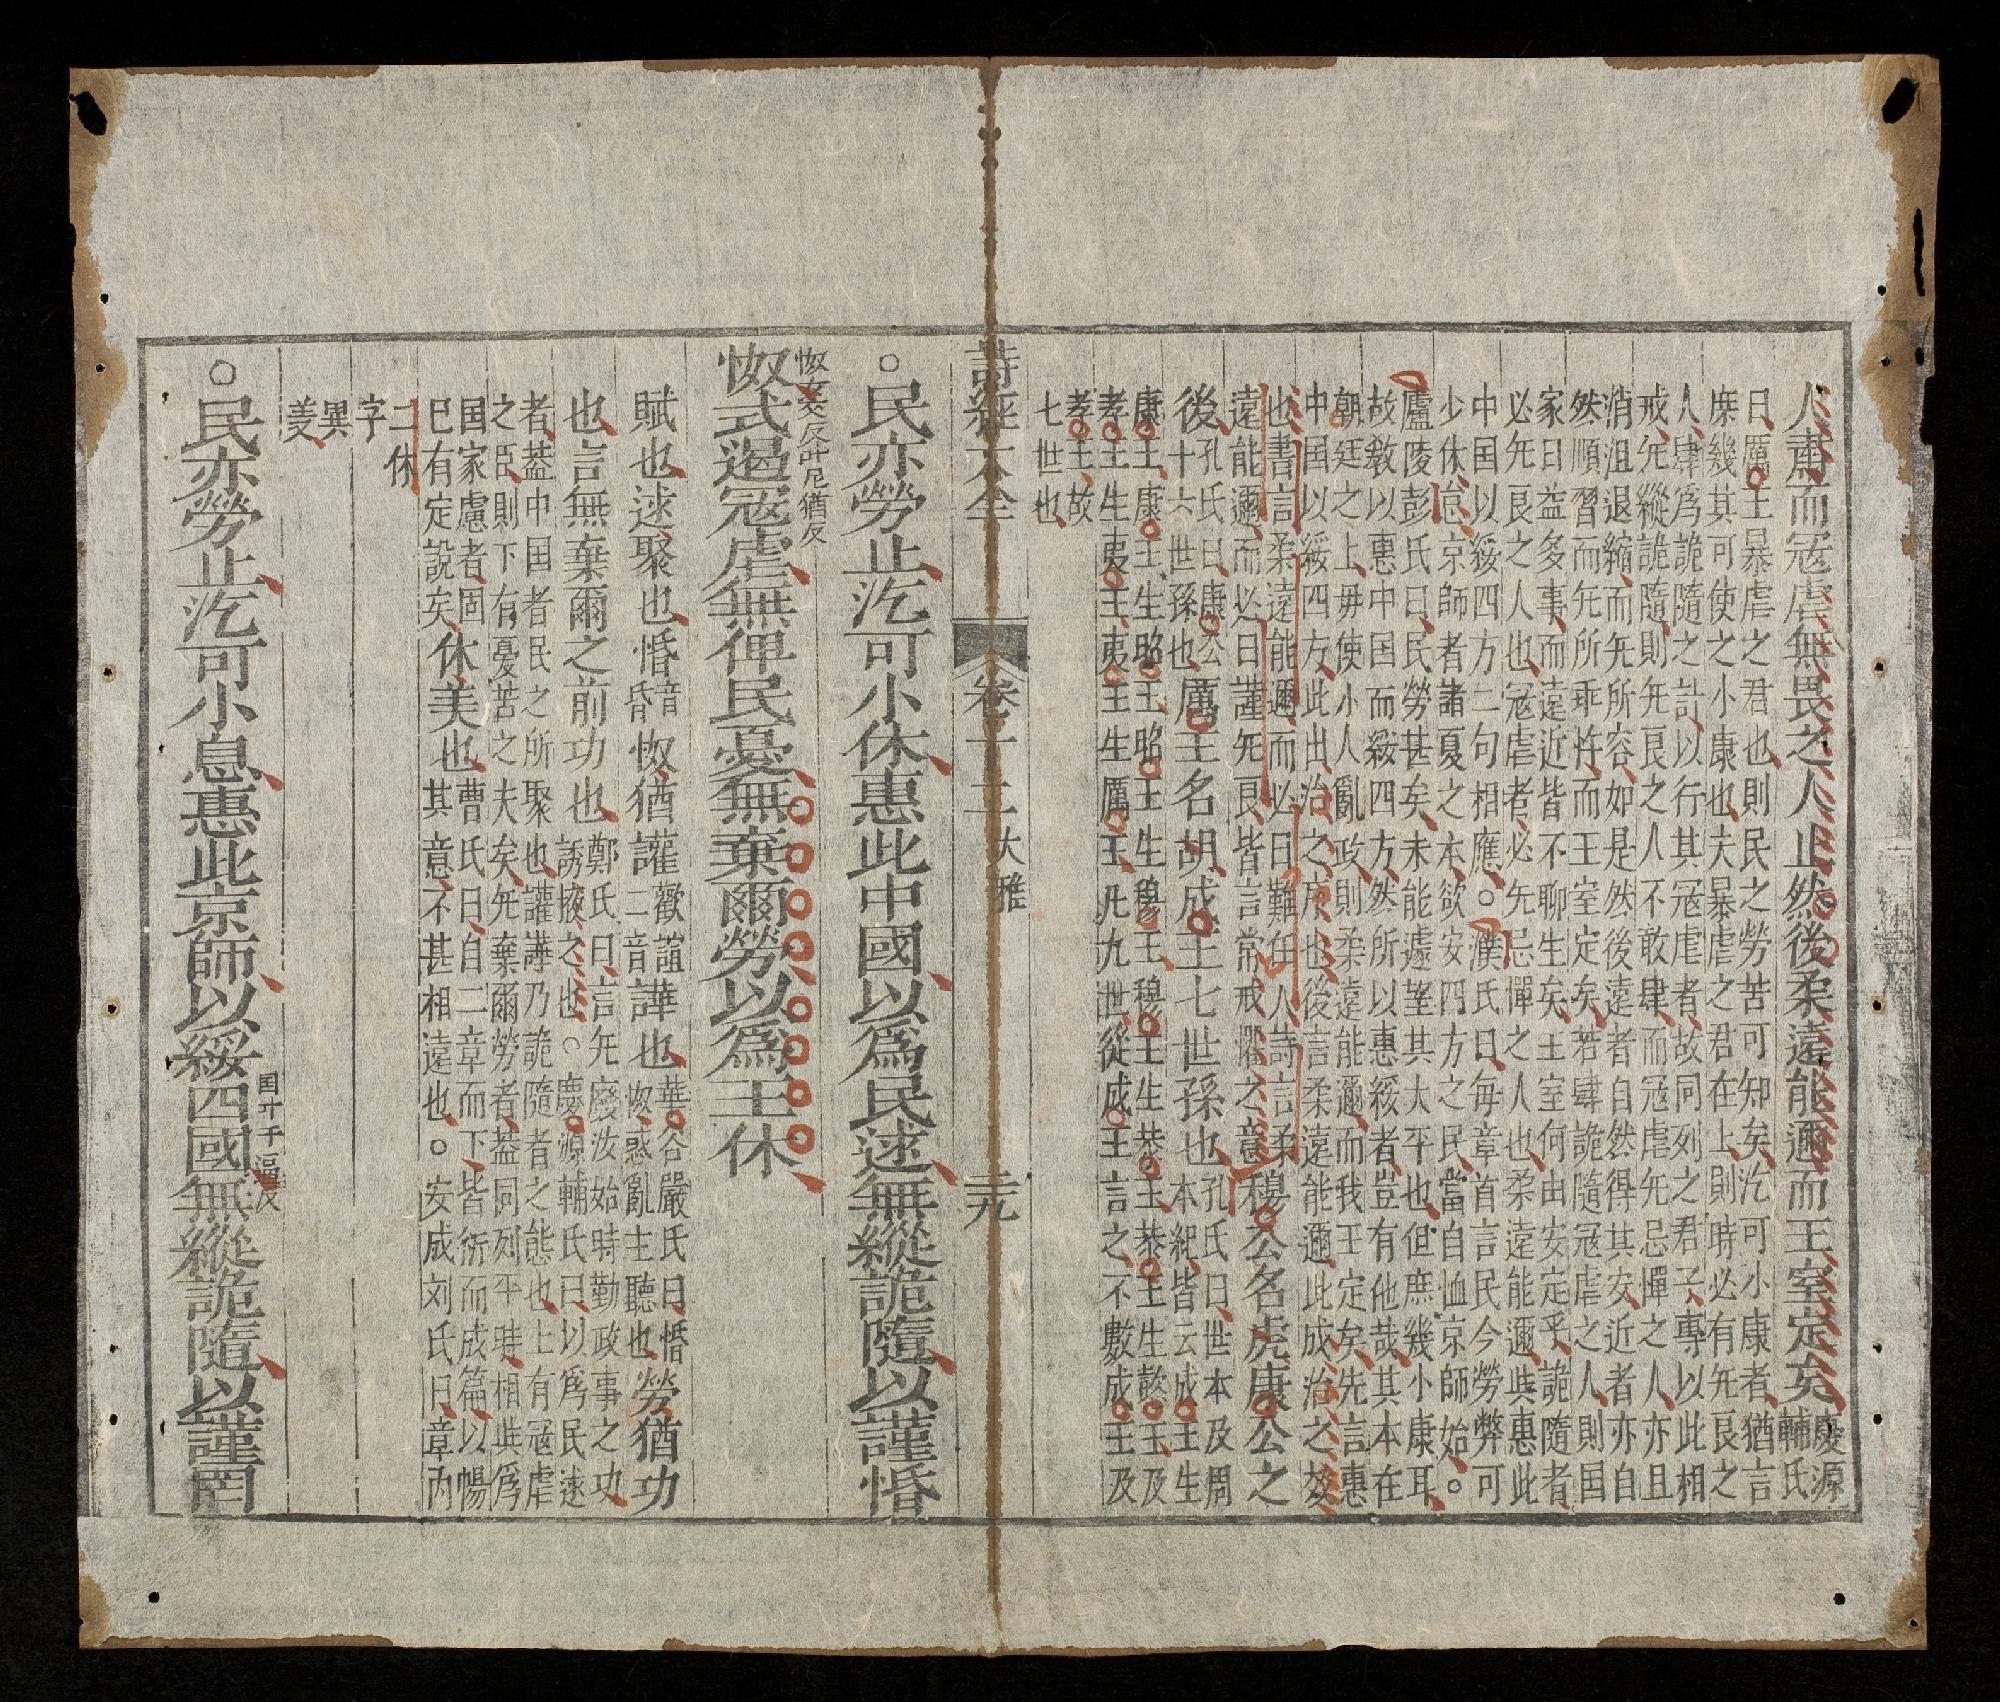 人肅而寇虐無畏之人止然後柔遠能邇而王室定矣慶源
輔氏
曰厲王暴虐之君也則民之勞苦可知矣汔可小康者猶言
庶幾其可使之小康也夫暴虐之君在上則時必有无良之
人肆爲詭隨之計以行其寇虐者故同列之君子專以此相
戒无縱詭隨則无良之人不敢肆而寇虐无忌憚之人亦且
消沮退縮而无所容如是然後遠者自然得其安近者亦自
然順習而无所乖忤而王室定矣若肆詭隨寇虐之人則国
家日益多事而遠近皆不聊生矣王室何由安定乎詭隨者
必无良之人也寇虐者必无忌憚之人也柔遠能邇與惠此
中国以綏四方二句相應。濮氏曰每章首言民今勞弊可
少休怠京師者諸夏之本欲安四方之民當自恤京師始。
廬陵彭氏曰民勞甚矣未能遽望其大平也但庶幾小康耳
故敎以惠中国而綏四方然所以惠綏者豈有他哉其本在
朝廷之上毋使小人亂政則柔遠能邇而我王定矣先言惠
中国以綏四方此出治之序也後言柔遠能邇此成治之效
也書言柔遠能邇而必曰難任人詩言柔
遠能邇而必曰謹无良皆言常戒懼之意
穆公名虎康公之
後孔氏曰康公
十六世孫也
厲王名胡成王七世孫也孔氏曰世本及周
本紀皆云成王生
康王康王生昭王昭王生穆王穆王生恭王恭王生懿王及
孝王生夷王夷王生厲王凡九世從成王言之不數成王及
孝王故
七世也
詩經大全 卷十二 大雅 三九
○民亦勞止汔可小休惠此中國以爲民逑無縱詭隨以謹惛
怓女交反叶尼猶反
怓式遏寇虐無俾民憂無棄爾勞以爲王休
賦也逑聚也惛音昏怓猶讙歡諠二音譁也華谷嚴氏曰惛
怓惑亂主聽也
勞猶功
也言無棄爾之前功也鄭氏曰言无廢汝始時勤政事之功
誘掖之也。慶源輔氏曰以爲民逑
者葢中国者民之所聚也讙譁乃詭隨者之態也上有寇虐
之臣則下有憂苦之夫矣无棄爾勞者葢同列平時相與爲
国家慮者固
已有定說矣
休美也曹氏曰自二章而下皆衍而成篇以暢
其意不甚相遠也。安成刘氏曰章內
二休
字
異
羙
○民亦勞止汔可小息惠此京師以綏四國国叶于逼反無縱詭隨以謹罔